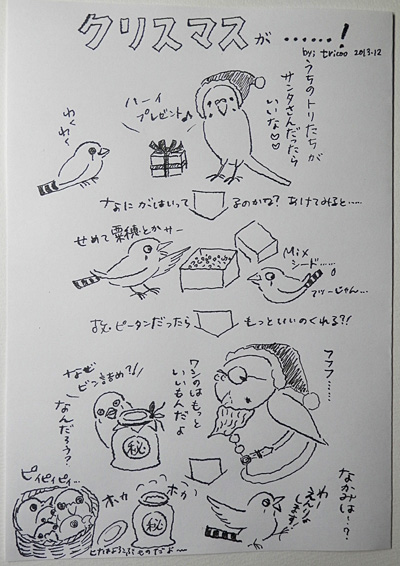 クリスマスが……!
by; tricoo 2013.12
うちのトリたちが
サンタさんだったら
いいな♡♡
ハーイ
プレゼント♪
わくわく
なにがはいって
るのかな? あけてみると……
せめて粟穂とかサー
Mix
シード……。
フツーじゃん…
ピータンだったら
もっといいのくれる?!
フフフ……
ワシのはもっと
いいもんだよ
なぜ
ビン詰め?!
なんだろう?
㊙
なかみは…?
わー
ピィピィピィ…
ホカ
ホカ
㊙